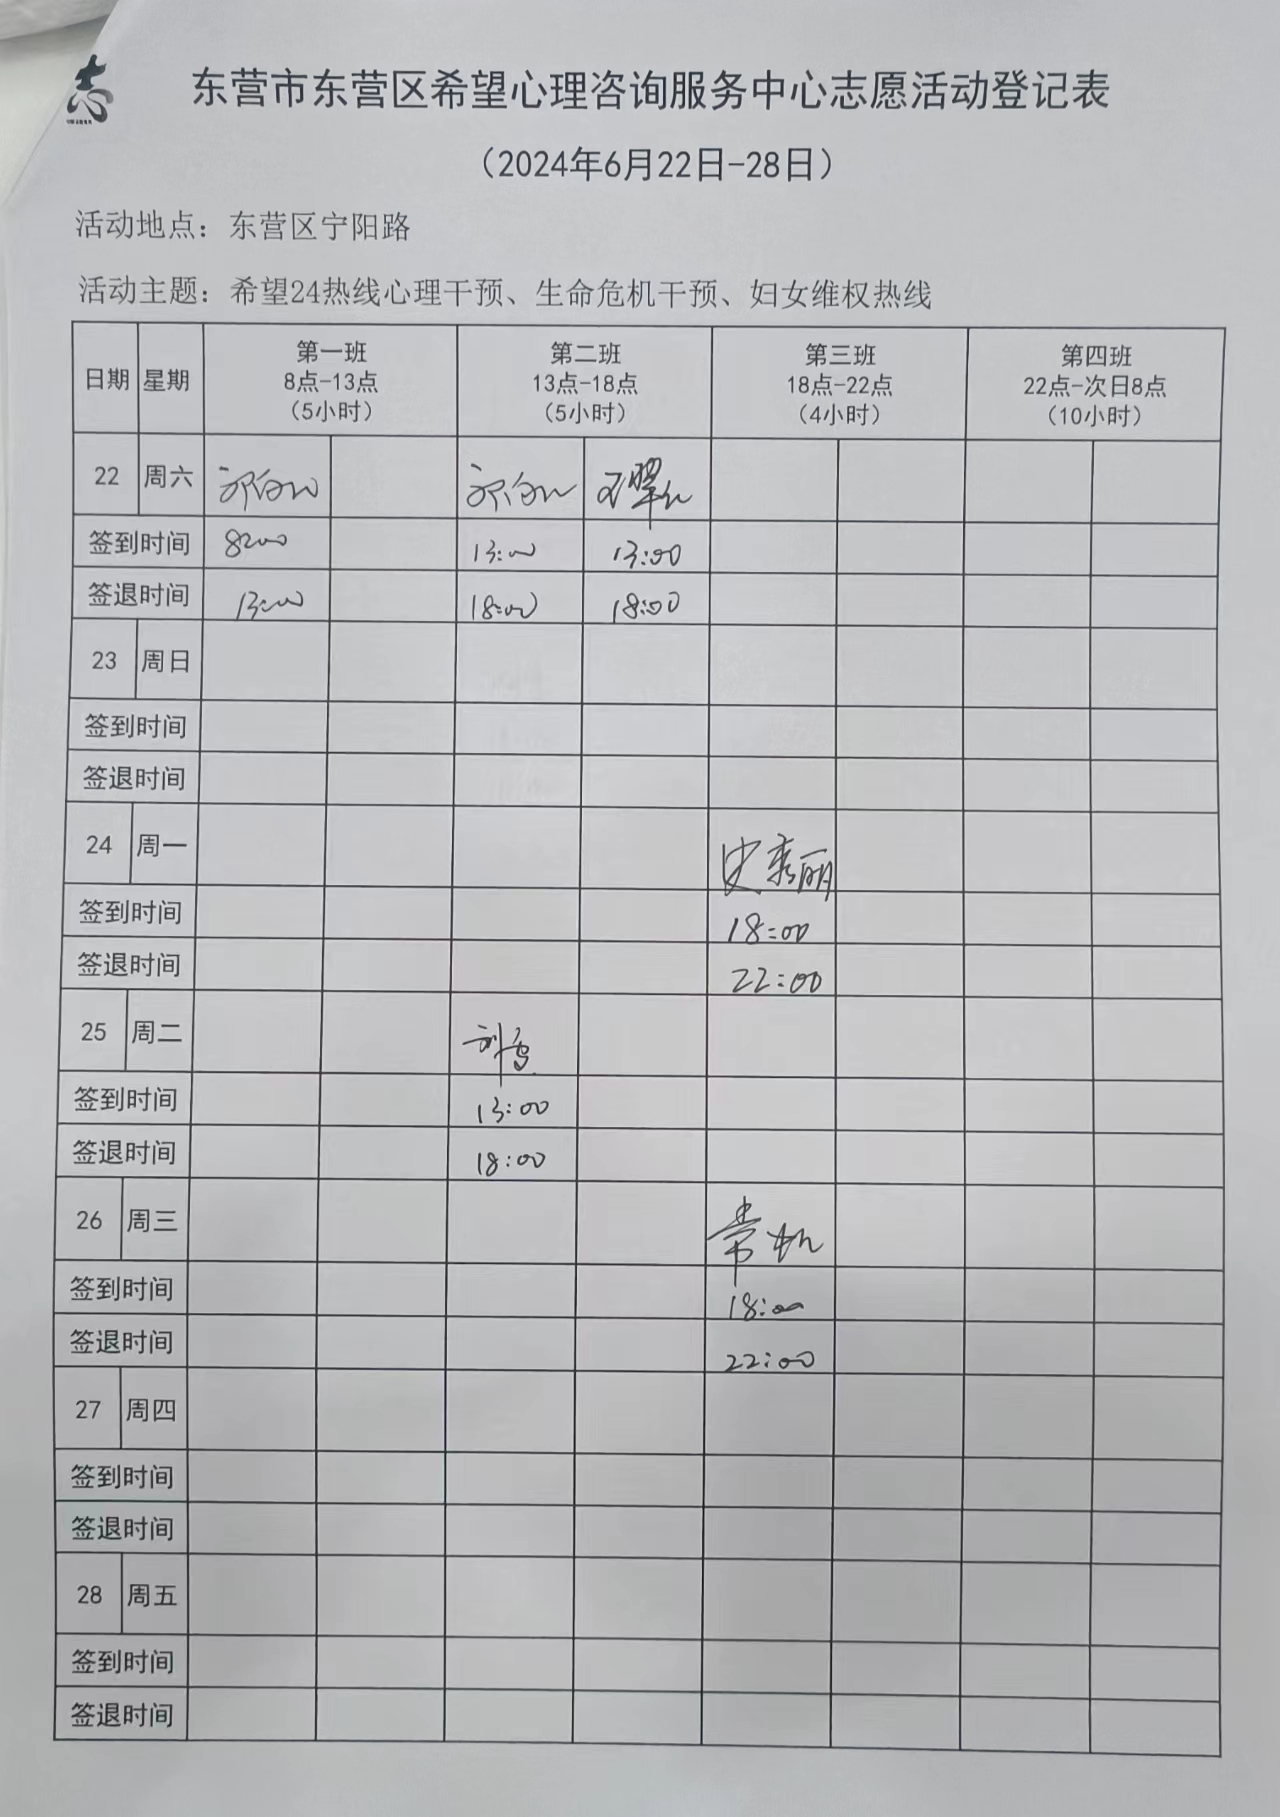 志
东营市东营区希望心理咨询服务中心志愿活动登记表
（2024年6月22日-28日）
活动地点：东营区宁阳路
活动主题：希望24热线心理干预、生命危机干预、妇女维权热线
日期 星期 第一班 8点-13点 （5小时） 第二班 13点-18点 （5小时） 第三班 18点-22点 （4小时） 第四班 22点-次日8点 （10小时）
22 周六
签到时间 8:00 13:00 13:00
签退时间 13:00 18:00 18:00
23 周日
签到时间
签退时间
24 周一 史秀丽
签到时间 18:00
签退时间 22:00
25 周二
签到时间 13:00
签退时间 18:00
26 周三 常
签到时间 18:00
签退时间 22:00
27 周四
签到时间
签退时间
28 周五
签到时间
签退时间